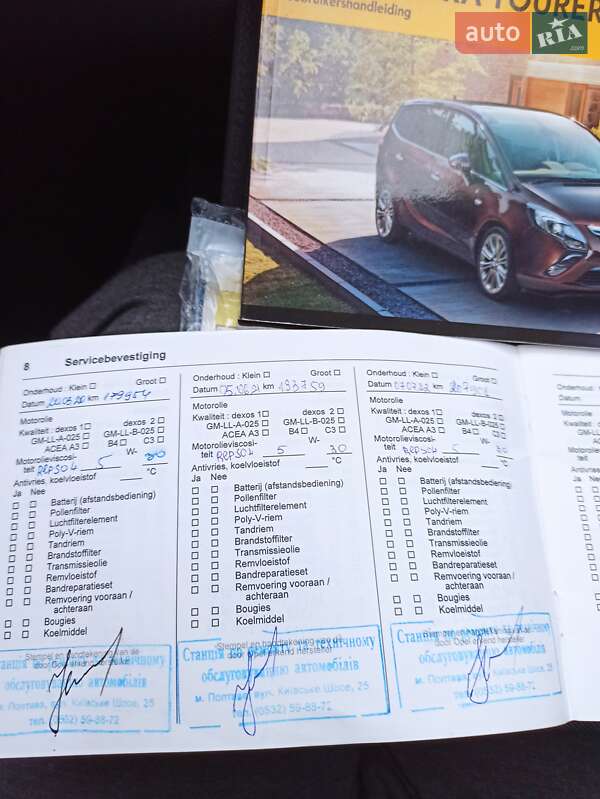 TOURER
gebruikershandleiding
auto RIA .com
8 Servicebevestiging
Onderhoud : Klein ☐ Groot ☐
Datum km 179954
Motorolie
Kwaliteit : dexos 1 ☐ dexos 2 ☐
GM-LL-A-025 ☐ GM-LL-B-025 ☐
ACEA A3 ☐ B4 ☐ C3 ☐
Motorolieviscosi- W-
teit 5 30
Antivries, koelvloeistof °C
Ja Nee
☐ ☐ Batterij (afstandsbediening)
☐ ☐ Pollenfilter
☐ ☐ Luchtfilterelement
☐ ☐ Poly-V-riem
☐ ☐ Tandriem
☐ ☐ Brandstoffilter
☐ ☐ Transmissieolie
☐ ☐ Remvloeistof
☐ ☐ Bandreparatieset
☐ ☐ Remvoering vooraan / achteraan
☐ ☐ Bougies
☐ ☐ Koelmiddel
Станція технічному
обслуговуванню автомобілів
м. Полтава, вул. Київське Шосе, 25
тел. (0532) 59-88-72
Onderhoud : Klein ☐ Groot ☐
Datum km 193759
Motorolie
Kwaliteit : dexos 1 ☐ dexos 2 ☐
GM-LL-A-025 ☐ GM-LL-B-025 ☐
ACEA A3 ☐ B4 ☐ C3 ☐
Motorolieviscosi- W-
teit 5 30
Antivries, koelvloeistof °C
Ja Nee
☐ ☐ Batterij (afstandsbediening)
☐ ☐ Pollenfilter
☐ ☐ Luchtfilterelement
☐ ☐ Poly-V-riem
☐ ☐ Tandriem
☐ ☐ Brandstoffilter
☐ ☐ Transmissieolie
☐ ☐ Remvloeistof
☐ ☐ Bandreparatieset
☐ ☐ Remvoering vooraan / achteraan
☐ ☐ Bougies
☐ ☐ Koelmiddel
Stempel en handtekening van de
door Opel erkend hersteller
Станція технічному
обслуговуванню автомобілів
м. Полтава, вул. Київське Шосе, 25
тел. (0532) 59-88-72
Onderhoud : Klein ☐ Groot ☐
Datum km
Motorolie
Kwaliteit : dexos 1 ☐ dexos 2 ☐
GM-LL-A-025 ☐ GM-LL-B-025 ☐
ACEA A3 ☐ B4 ☐ C3 ☐
Motorolieviscosi- W-
teit 5 30
Antivries, koelvloeistof °C
Ja Nee
☐ ☐ Batterij (afstandsbediening)
☐ ☐ Pollenfilter
☐ ☐ Luchtfilterelement
☐ ☐ Poly-V-riem
☐ ☐ Tandriem
☐ ☐ Brandstoffilter
☐ ☐ Transmissieolie
☐ ☐ Remvloeistof
☐ ☐ Bandreparatieset
☐ ☐ Remvoering vooraan / achteraan
☐ ☐ Bougies
☐ ☐ Koelmiddel
Станція
обслуговуванню автомобілів
м. Полтава, вул. Київське Шосе, 25
тел. (0532) 59-88-72